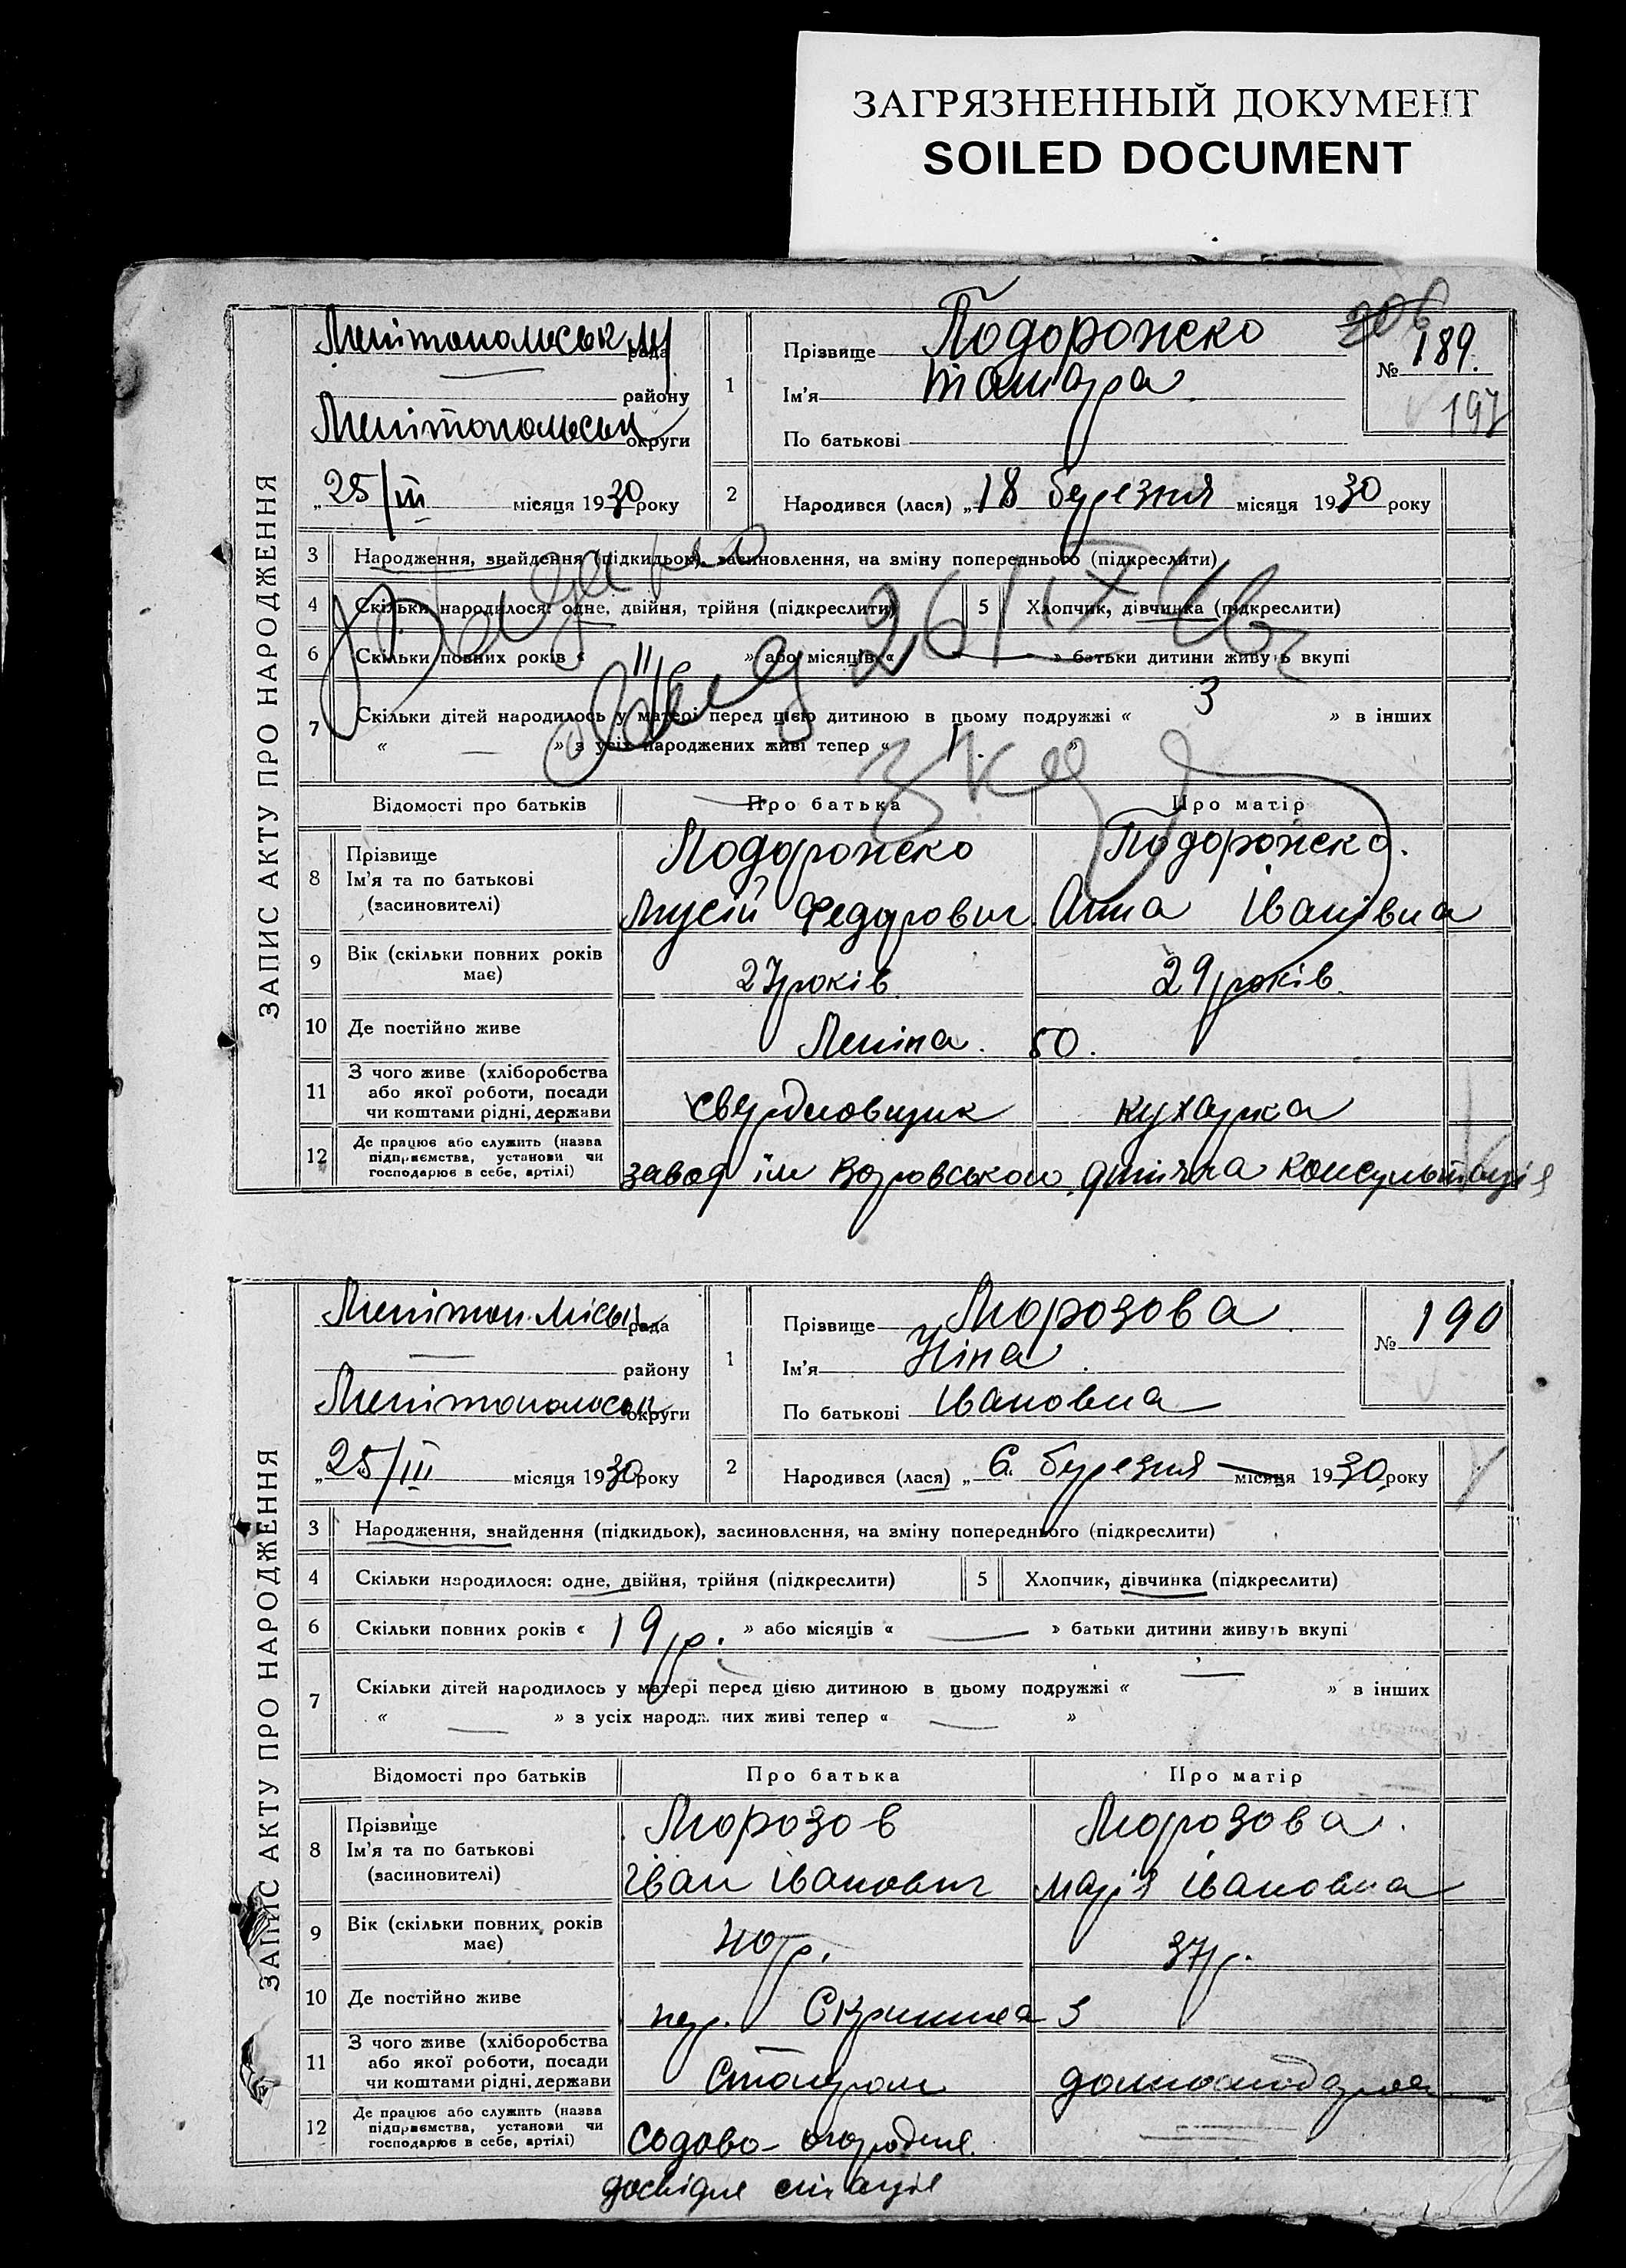 ЗАГРЯЗНЕННЫЙ ДОКУМЕНТ
SOILED DOCUMENT
ЗАПИС АКТУ ПРО НАРОДЖЕННЯ
Мелітопольськ рада
району
Мелітопольськ округи
„25/III місяця 1930 року
1
Прізвище Подорожко
Ім'я Тамара
По батькові
206
№ 189.
197
2
Народився (лася) „18 березня місяця 1930 року
3 Народження, знайдення (підкидьок), засиновлення, на зміну попереднього (підкреслити)
4 Скільки народилося: одне, двійня, трійня (підкреслити) 5 Хлопчик, дівчинка (підкреслити)
6 Скільки повних років « 11 » або місяців « — » батьки дитини живуть вкупі
7 Скільки дітей народилось у матері перед цією дитиною в цьому подружжі « 3 » в інших
« — » з усіх народжених живі тепер « 1. »
26/IX
Відомості про батьків Про батька Про матір
8 Прізвище
Ім'я та по батькові
(засиновителі)
Подорожко Подорожко.
Мусій Федорович Анна Іванівна
9 Вік (скільки повних років має) 27 років 29 років.
10 Де постійно живе Леніна. 50.
11 З чого живе (хліборобства
або якої роботи, посади
чи коштами рідні, держави
свердловщик кухарка
12 Де працює або служить (назва
підприємства, установи чи
господарює в себе, артілі)
завод ім Воровського дитяча консультація
ЗАПИС АКТУ ПРО НАРОДЖЕННЯ
Мелітоп. міськ рада
— району
Мелітопольськ округи
„25/III місяця 1930 року
1
Прізвище Морозова
Ім'я Ніна
По батькові Івановна
№ 190
2
Народився (лася) „6 березня місяця 1930 року
3 Народження, знайдення (підкидьок), засиновлення, на зміну попереднього (підкреслити)
4 Скільки народилося: одне, двійня, трійня (підкреслити) 5 Хлопчик, дівчинка (підкреслити)
6 Скільки повних років « 19 р. » або місяців « — » батьки дитини живуть вкупі
7 Скільки дітей народилось у матері перед цією дитиною в цьому подружжі « — » в інших
« — » з усіх народж них живі тепер « — »
Відомості про батьків Про батька Про матір
8 Прізвище
Ім'я та по батькові
(засиновителі)
Морозов Морозова.
Іван Іванович Марія Івановна
9 Вік (скільки повних років має) 40 р. 37 р.
10 Де постійно живе пер. 3
11 З чого живе (хліборобства
або якої роботи, посади
чи коштами рідні, держави
Столяром домогосподарка
12 Де працює або служить (назва
підприємства, установи чи
господарює в себе, артілі)
Садово-огородня
досвідня станція